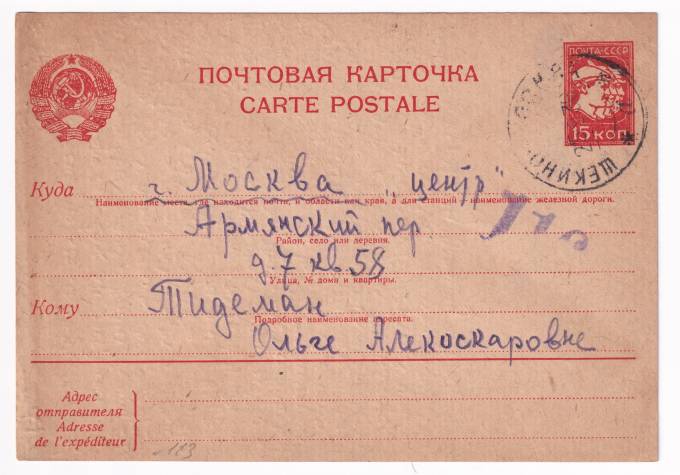 ПОЧТОВАЯ КАРТОЧКА
CARTE POSTALE
ПОЧТА-СССР
15 КОП
ЩЕКИНО
Куда г. Москва „центр"
Наименование места, где находится почта, и области или края, а для станций наименование железной дороги.
Армянский пер
Район, село или деревня.
д. 7 кв. 58
Улица, № дома и квартиры.
Кому Тидеман
Подробное наименование адресата.
Ольге Алекоскаровне
Адрес
отправителя
Adresse
de l'expéditeur
113